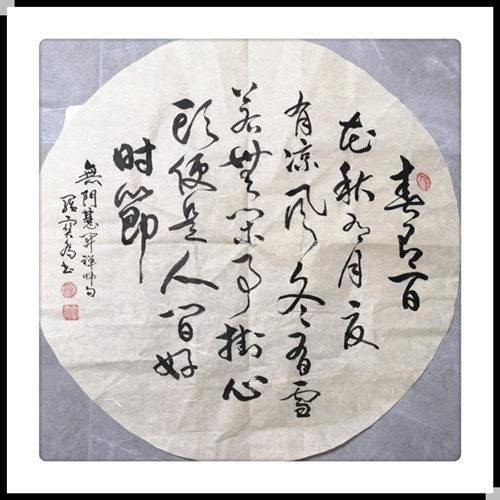 春有百
花秋有月夏
有凉风冬有雪
若無闲事掛心
头便是人间好
时節
無門慧開禅师句
书